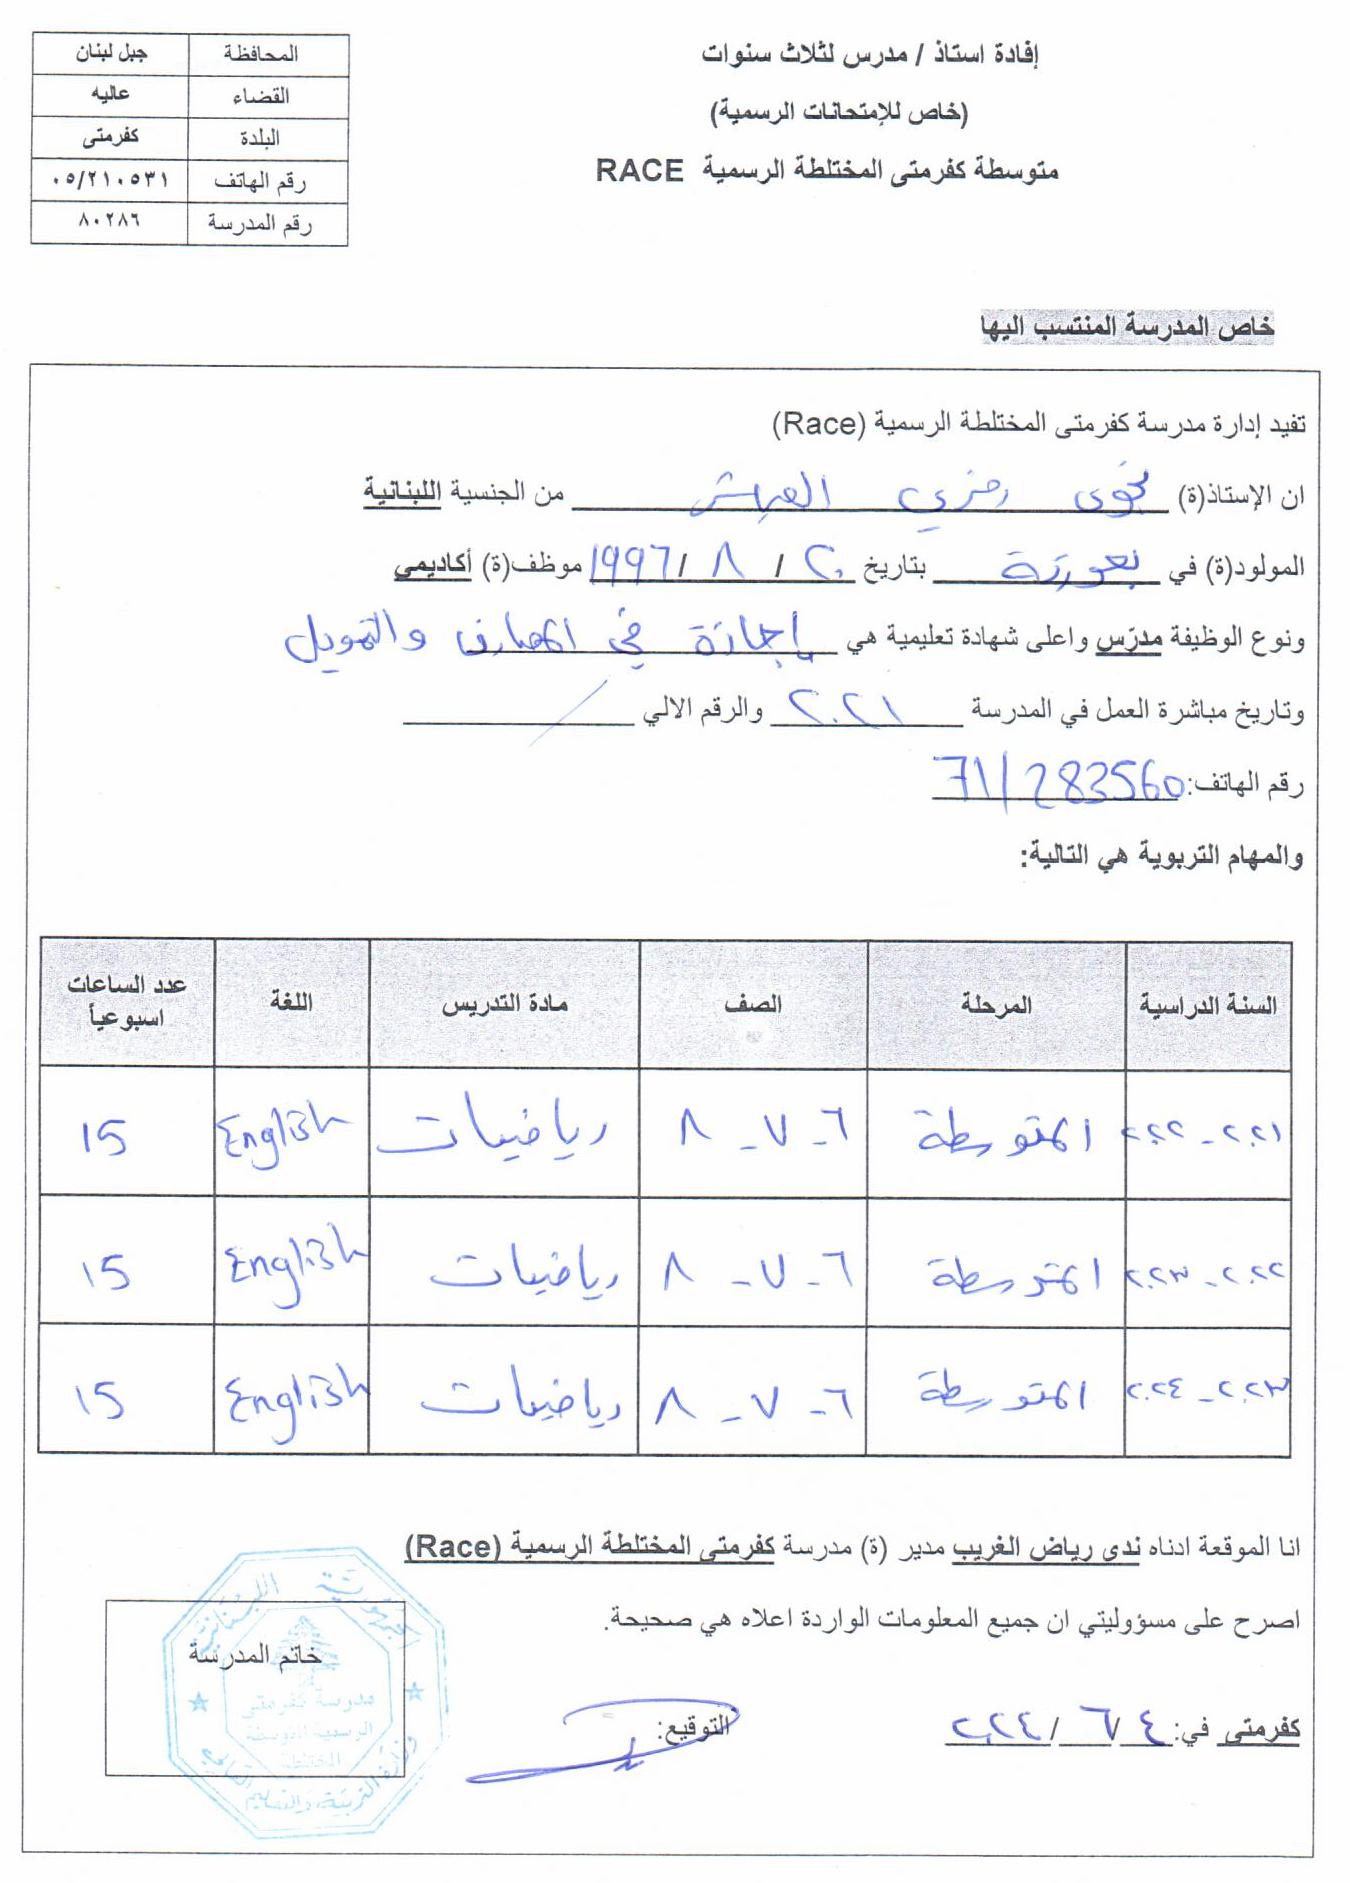 إفادة استاذ / مدرس لثلاث سنوات
(خاص للإمتحانات الرسمية)
متوسطة كفرمتى المختلطة الرسمية RACE
المحافظة جبل لبنان
القضاء عاليه
البلدة كفرمتى
رقم الهاتف ٠٥/٢١٠٥٣١
رقم المدرسة ٨٠٢٨٦
خاص المدرسة المنتسب اليها
تفيد إدارة مدرسة كفرمتى المختلطة الرسمية (Race)
ان الإستاذ(ة) نجوى رمزي العياش من الجنسية اللبنانية
المولود(ة) في بعورتة بتاريخ ٢٠ / ٨ / 1997 موظف(ة) أكاديمي
ونوع الوظيفة مدرّس واعلى شهادة تعليمية هي إجازة في المصارف والتمويل
وتاريخ مباشرة العمل في المدرسة ٢٠٢١ والرقم الالي /
رقم الهاتف: 71/283560
والمهام التربوية هي التالية:
السنة الدراسية المرحلة الصف مادة التدريس اللغة عدد الساعات اسبوعياً
٢٠٢١ - ٢٠٢٢ المتوسطة ٦ - ٧ - ٨ رياضيات English 15
٢٠٢٢ - ٢٠٢٣ المتوسطة ٦ - ٧ - ٨ رياضيات English 15
٢٠٢٣ - ٢٠٢٤ المتوسطة ٦ - ٧ - ٨ رياضيات English 15
انا الموقعة ادناه ندى رياض الغريب مدير (ة) مدرسة كفرمتى المختلطة الرسمية (Race)
اصرح على مسؤوليتي ان جميع المعلومات الواردة اعلاه هي صحيحة.
كفرمتى في: ٤ / ٦ / ٢٠٢٤ التوقيع:
خاتم المدرسة
الجمهورية اللبنانية
مدرسة كفرمتى
الرسمية المتوسطة
المختلطة
وزارة التربية والتعليم العالي